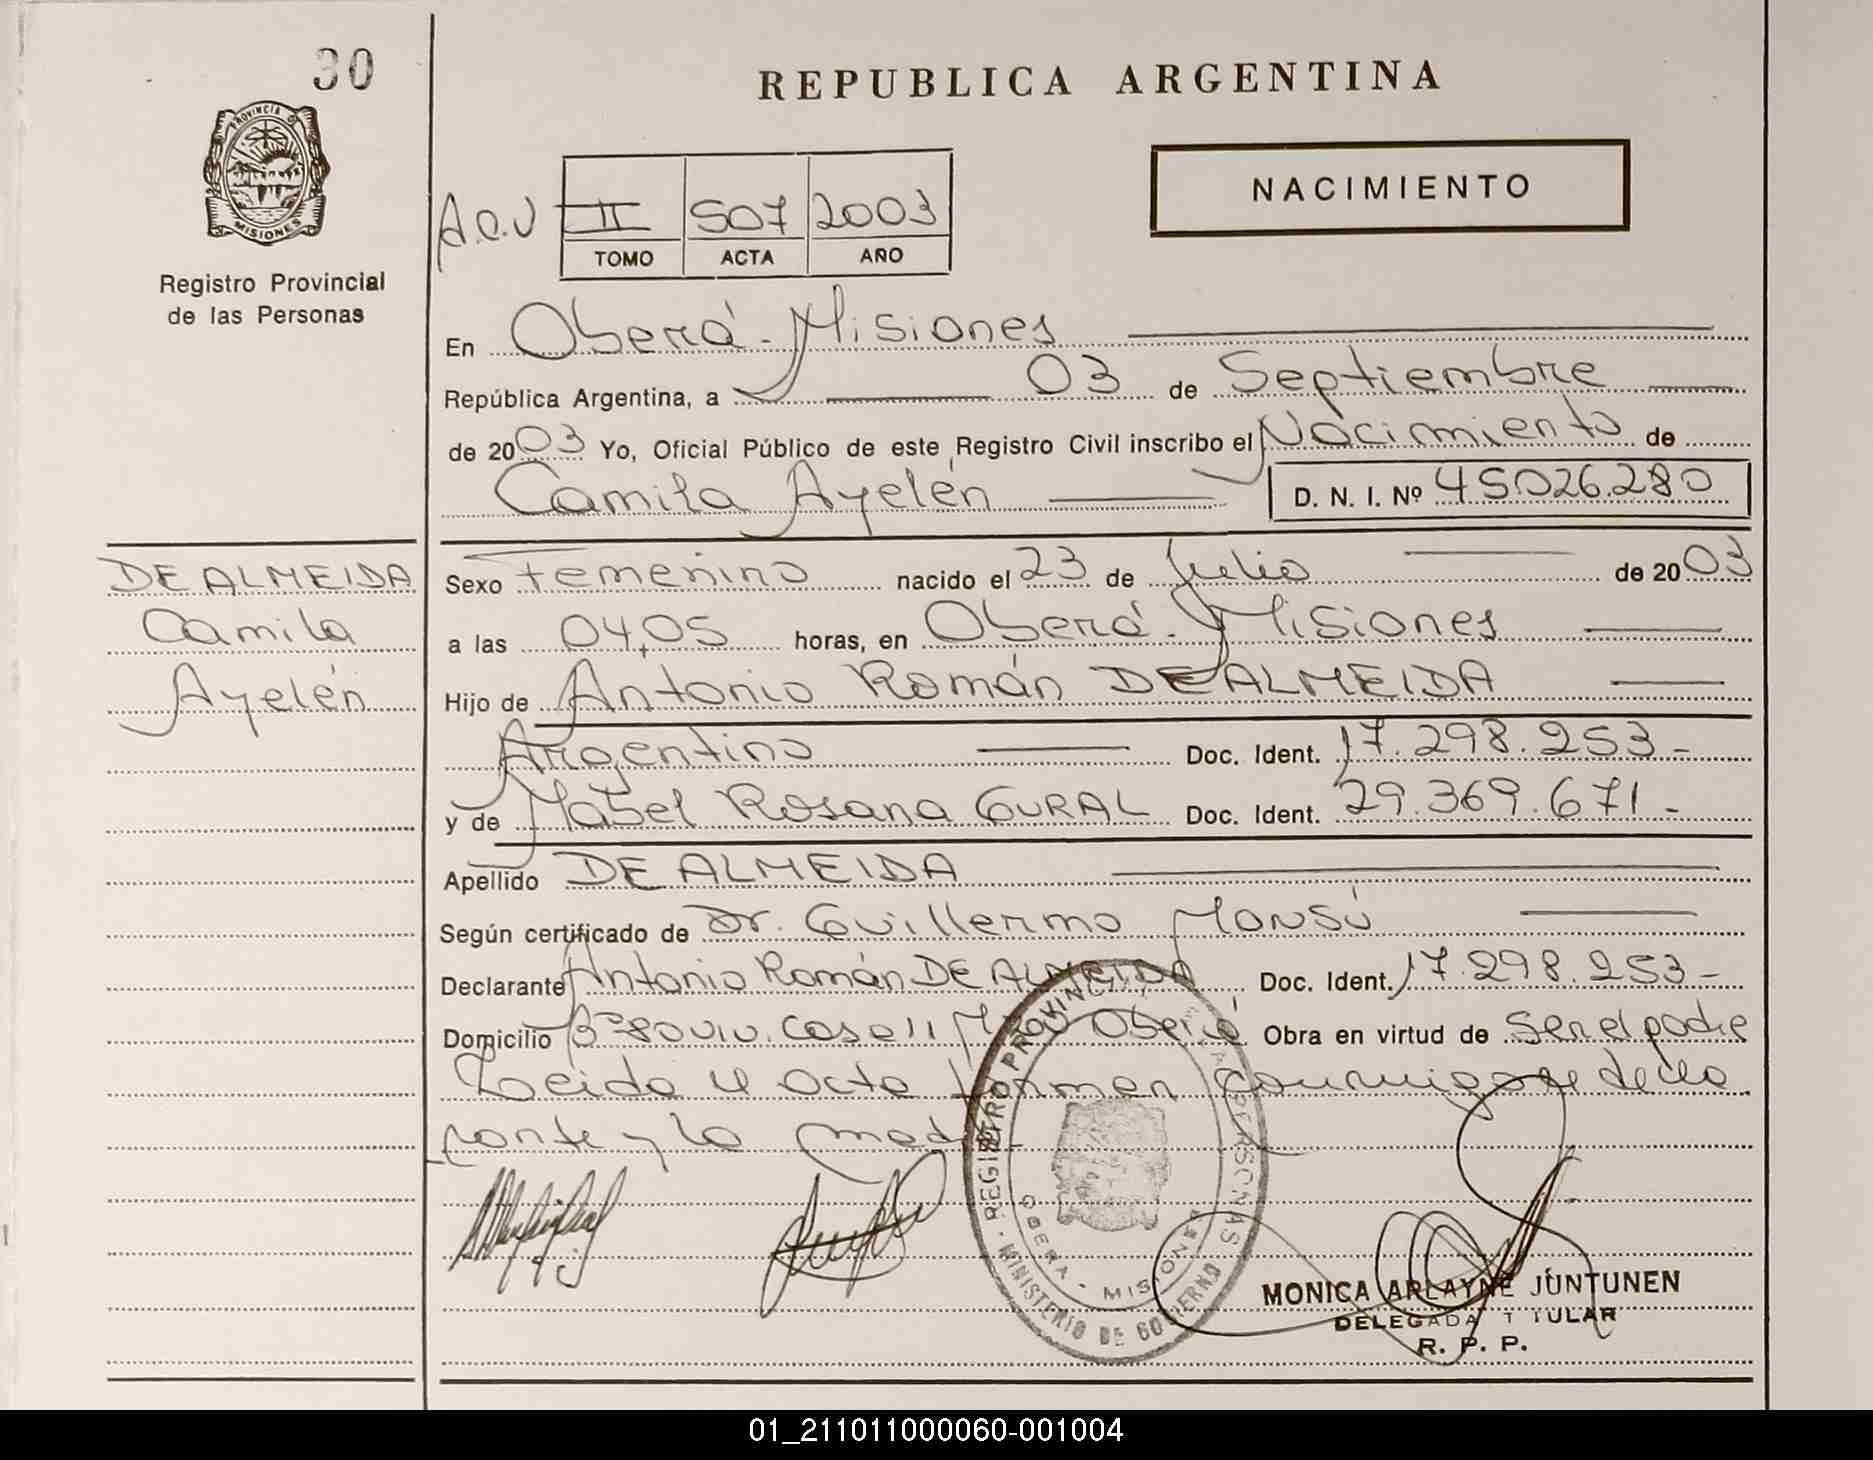 30
REPUBLICA ARGENTINA
PROVINCIA D
MISIONES
Registro Provincial
de las Personas
NACIMIENTO
II 507 2003
TOMO ACTA AÑO
En Oberá - Misiones
República Argentina, a 03 de Septiembre
de 2003 Yo, Oficial Público de este Registro Civil inscribo el Nacimiento de
Camila Ayelén D. N. I. Nº 45026.280
DE ALMEIDA
Camila
Ayelén
Sexo Femenino nacido el 23 de Julio de 2003
a las 04,05 horas, en Oberá - Misiones
Hijo de Antonio Román DE ALMEIDA
Argentino Doc. Ident. 17.298.253-
y de Mabel Rosana GURAL Doc. Ident. 29.369.671-
Apellido DE ALMEIDA
Según certificado de Dr. Guillermo Monsú
Declarante Antonio Román DE ALMEIDA Doc. Ident. 17.298.253-
Domicilio Bº 80 viv. casa 11 Oberá Obra en virtud de Ser el padre
Leida el acta firman de
y la
REGISTRO PROVINCIAL DE LAS PERSONAS
OBERA - MISIONES
MINISTERIO DE GOBIERNO
MONICA ARLAYNE JUNTUNEN
DELEGADA TITULAR
R. P. P.
01_211011000060-001004